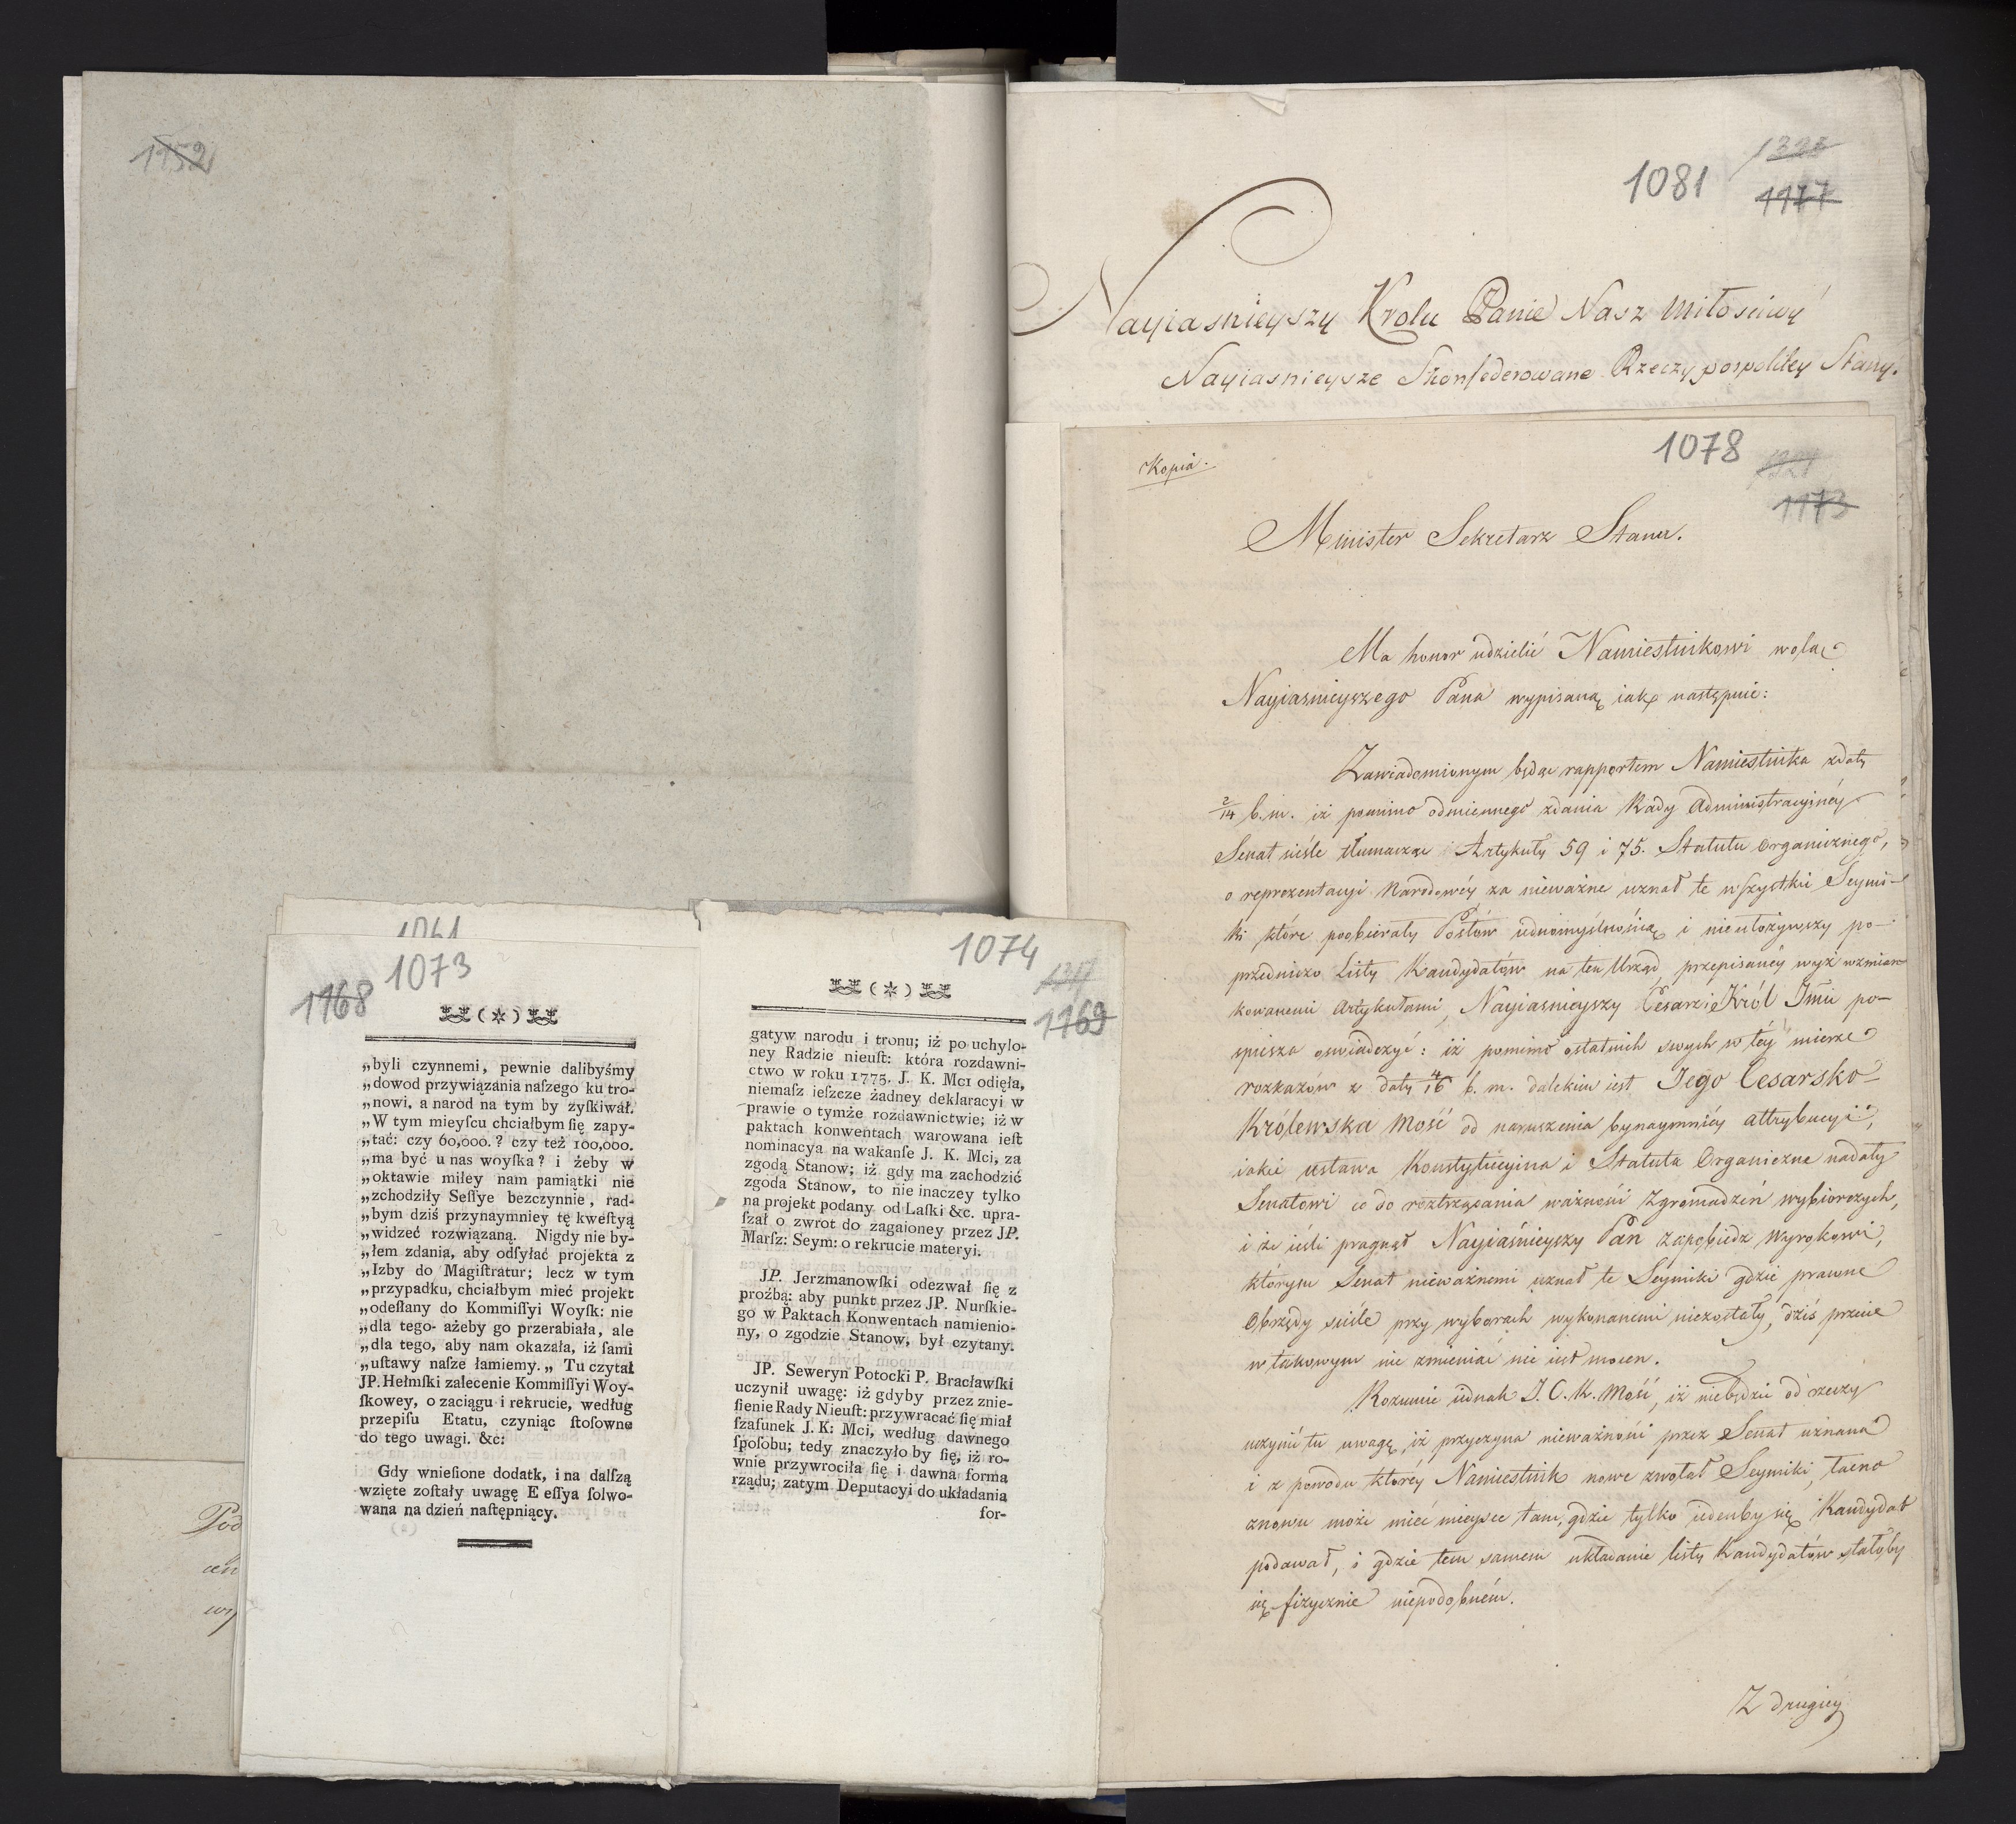 1152
1061
1073
1168
„byli czynnemi, pewnie dalibyśmy
„dowod przywiązania naſzego ku tro-
„nowi, a narod na tym by zyſkiwał.
„W tym mieyſcu chciałbym ſię zapy-
„tać: czy 60,000.? czy też 100,000.
„ma być u nas woyſka? i żeby w
„oktawie miłey nam pamiątki nie
„zchodziły Seſſye bezczynnie, rad-
„bym dziś przynaymniey tę kweſtyą
„widzeć rozwiązaną. Nigdy nie by-
„łem zdania, aby odſyłać projekta z
„Izby do Magiſtratur; lecz w tym
„przypadku, chciałbym mieć projekt
„odeſłany do Kommiſſyi Woyſk: nie
„dla tego- ażeby go przerabiała, ale
„dla tego, aby nam okazała, iż ſami
„uſtawy naſze łamiemy.„ Tu czytał
JP. Hełmſki zalecenie Kommiſſyi Woy-
ſkowey, o zaciągu i rekrucie, według
przepiſu Etatu, czyniąc ſtoſowne
do tego uwagi. &c:
Gdy wnieſione dodatk, i na dalſzą
wzięte zoſtały uwagę E eſſya ſolwo-
wana na dzień naſtępniący.
1074
1317
1169
gatyw narodu i tronu; iż po uchylo-
ney Radzie nieuſt: która rozdawni-
ctwo w roku 1775. J. K. Mci odięła,
niemaſz ieſzcze żadney deklaracyi w
prawie o tymże rozdawnictwie; iż w
paktach konwentach warowana ieſt
nominacya na wakanſe J. K. Mci, za
zgodą Stanow; iż gdy ma zachodzić
zgoda Stanow, to nie inaczey tylko
na projekt podany od Laſki &c. upra-
ſzał o zwrot do zagaioney przez JP.
Marſz: Seym: o rekrucie materyi.
JP. Jerzmanowſki odezwał ſię z
proźbą: aby punkt przez JP. Nurſkie-
go w Paktach Konwentach namienio-
ny, o zgodzie Stanow, był czytany.
JP. Seweryn Potocki P. Bracławſki
uczynił uwagę: iż gdyby przez znie-
ſienie Rady Nieuſt: przywracać ſię miał
ſzaſunek J. K: Mci, według dawnego
ſpoſobu; tedy znaczyło by ſię, iż ro-
wnie przywrociła ſię i dawna forma
rządu; zatym Deputacyi do układania
for-
1081
1177
Nayiasnieyszy Krolu Panie Nasz Miłosciwy
Nayiasnieysze Skonfederowane Rzeczypospolitey Stany.
Kopia.
1078
1173
Minister Sekretarz Stanu.
Ma honor udzielić Namiestnikowi wolą
Nayiasnieyszego Pana wypisaną iak następuie:
Zawiadomionym będąc rapportem Namiestnika z daty
2/14 b.m. iż pomimo odmiennego zdania Rady Administracyinéy
Senat ściśle tłumacząc Artykuły 59 i 75. Statutu Organicznego,
o reprezentacyi Narodowéy za nieważne uznał te wszystkie Seymi-
ki które poobierały Posłów iednomyślnością i nieułożywszy po-
przedniczo Listy Kandydatów na ten Urząd przepisanéy wyż wzmian-
kowanemi Artykułami, Nayiasnieyszy Cesarz i Król Jmć po-
spiesza oswiadczyć: iż pomimo ostatnich swych w téy mierze
rozkazów z daty 4/16 b.m. dalekim iest Jego Cesarsko-
Królewska Mość od naruszenia bynaymniéy attrybucyi,
iakie ustawa Konstytucyina i Statuta Organiczne nadały
Senatowi co do roztrząsania ważności Zgromadzeń wybiorczych,
i że ieśli pragnął Nayiaśnieyszy Pan zapobiedz wyrokowi,
którym Senat nieważnemi uznał te Seymiki gdzie prawne
Obrzędy ściśle przy wyborach wykonanemi niezostały, dziś przecie
w takowym nic zmieniać nie iest mocen.
Rozumie iednak J. C. K. Mość, iż niebędzie od rzeczy
uczynić tu uwagę, iż przyczyna nieważności przez Senat uznana
i z powodu któréy Namiestnik nowe zwołał Seymiki, łacno
znowu może mieć mieysce tam, gdzie tylko iedenby się Kandydat
podawał, i gdzie tem samem układanie listy Kandydatów stałoby
się fizycznie niepodobném.
Z drugiéy